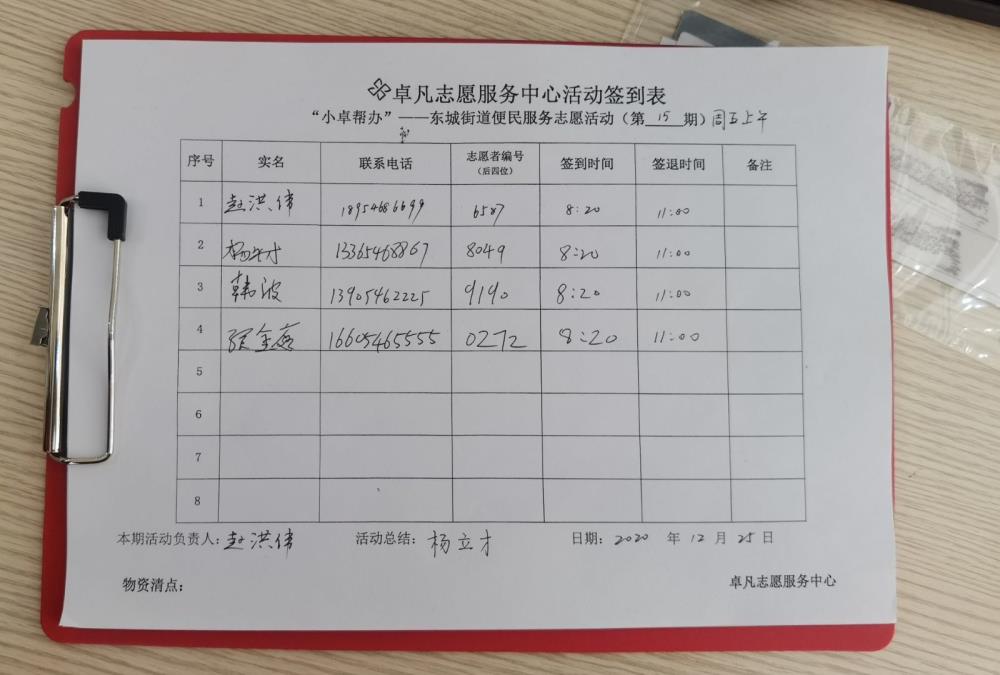 卓凡志愿服务中心活动签到表
“小卓帮办”——东城街道便民服务志愿活动（第 15 期）周五上午
序号 实名 联系电话 志愿者编号（后四位） 签到时间 签退时间 备注
1 赵洪伟 18954686699 6587 8:20 11:00
2 杨立才 13365468867 8049 8:20 11:00
3 韩波 13905462225 9190 8:20 11:00
4 张金 16605465555 0272 8:20 11:00
5
6
7
8
本期活动负责人：赵洪伟 活动总结：杨立才 日期：2020 年 12 月 25 日
物资清点： 卓凡志愿服务中心